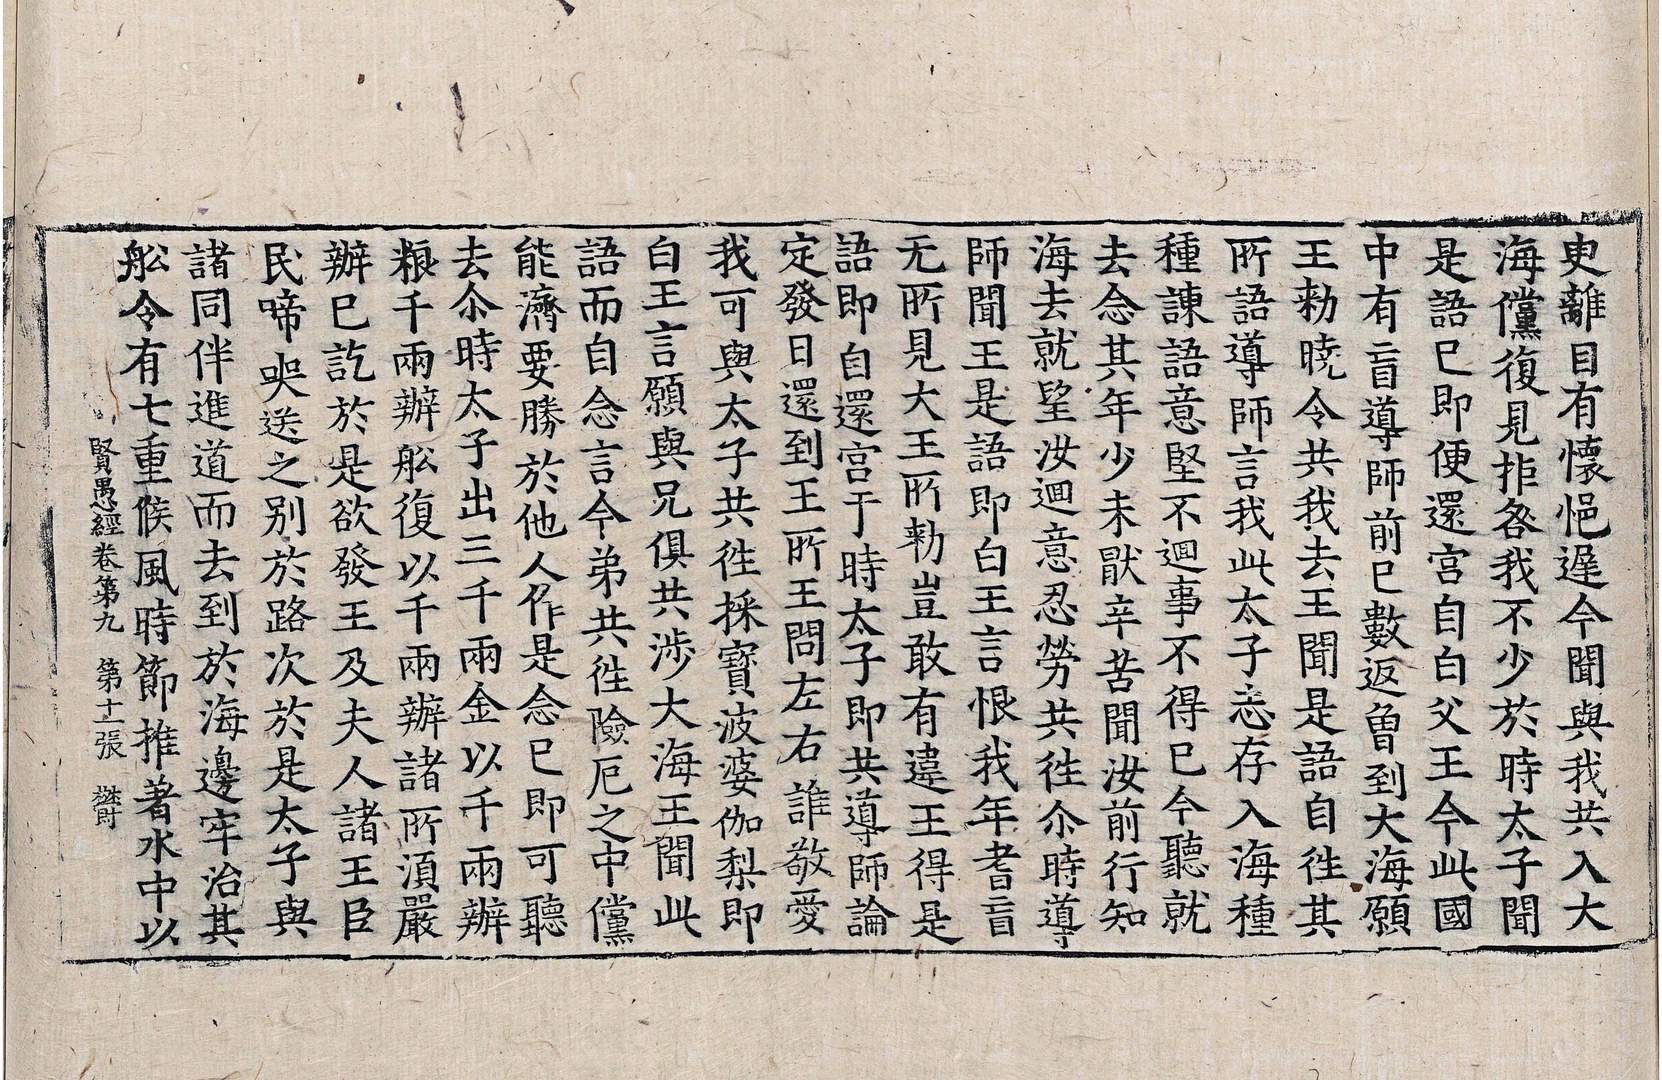 史離目有懷悒遲今聞與我共入大
海儻復見拒咎我不少於時太子聞
是語已即便還宮自白父王今此國
中有盲導師前已數返曾到大海願
王勑曉令共我去王聞是語自徃其
所語導師言我此太子志存入海種
種諫語意堅不迴事不得已今聽就
去念其年少未猒辛苦聞汝前行知
海去就望汝迴意忍勞共徃尒時導
師聞王是語即白王言恨我年耆盲
无所見大王所勑豈敢有違王得是
語即自還宮于時太子即共導師論
定發日還到王所王問左右誰敬愛
我可與太子共徃採寶波婆伽梨即
白王言願與兄俱共涉大海王聞此
語而自念言令弟共徃險厄之中儻
能濟要勝於他人作是念已即可聽
去尒時太子出三千兩金以千兩辦
粮千兩辦舩復以千兩辦諸所湏嚴
辦已訖於是欲發王及夫人諸王臣
民啼哭送之別於路次於是太子與
諸同伴進道而去到於海邊牢治其
舩令有七重候風時節推著水中以
賢愚經卷第九　第十一張　欝